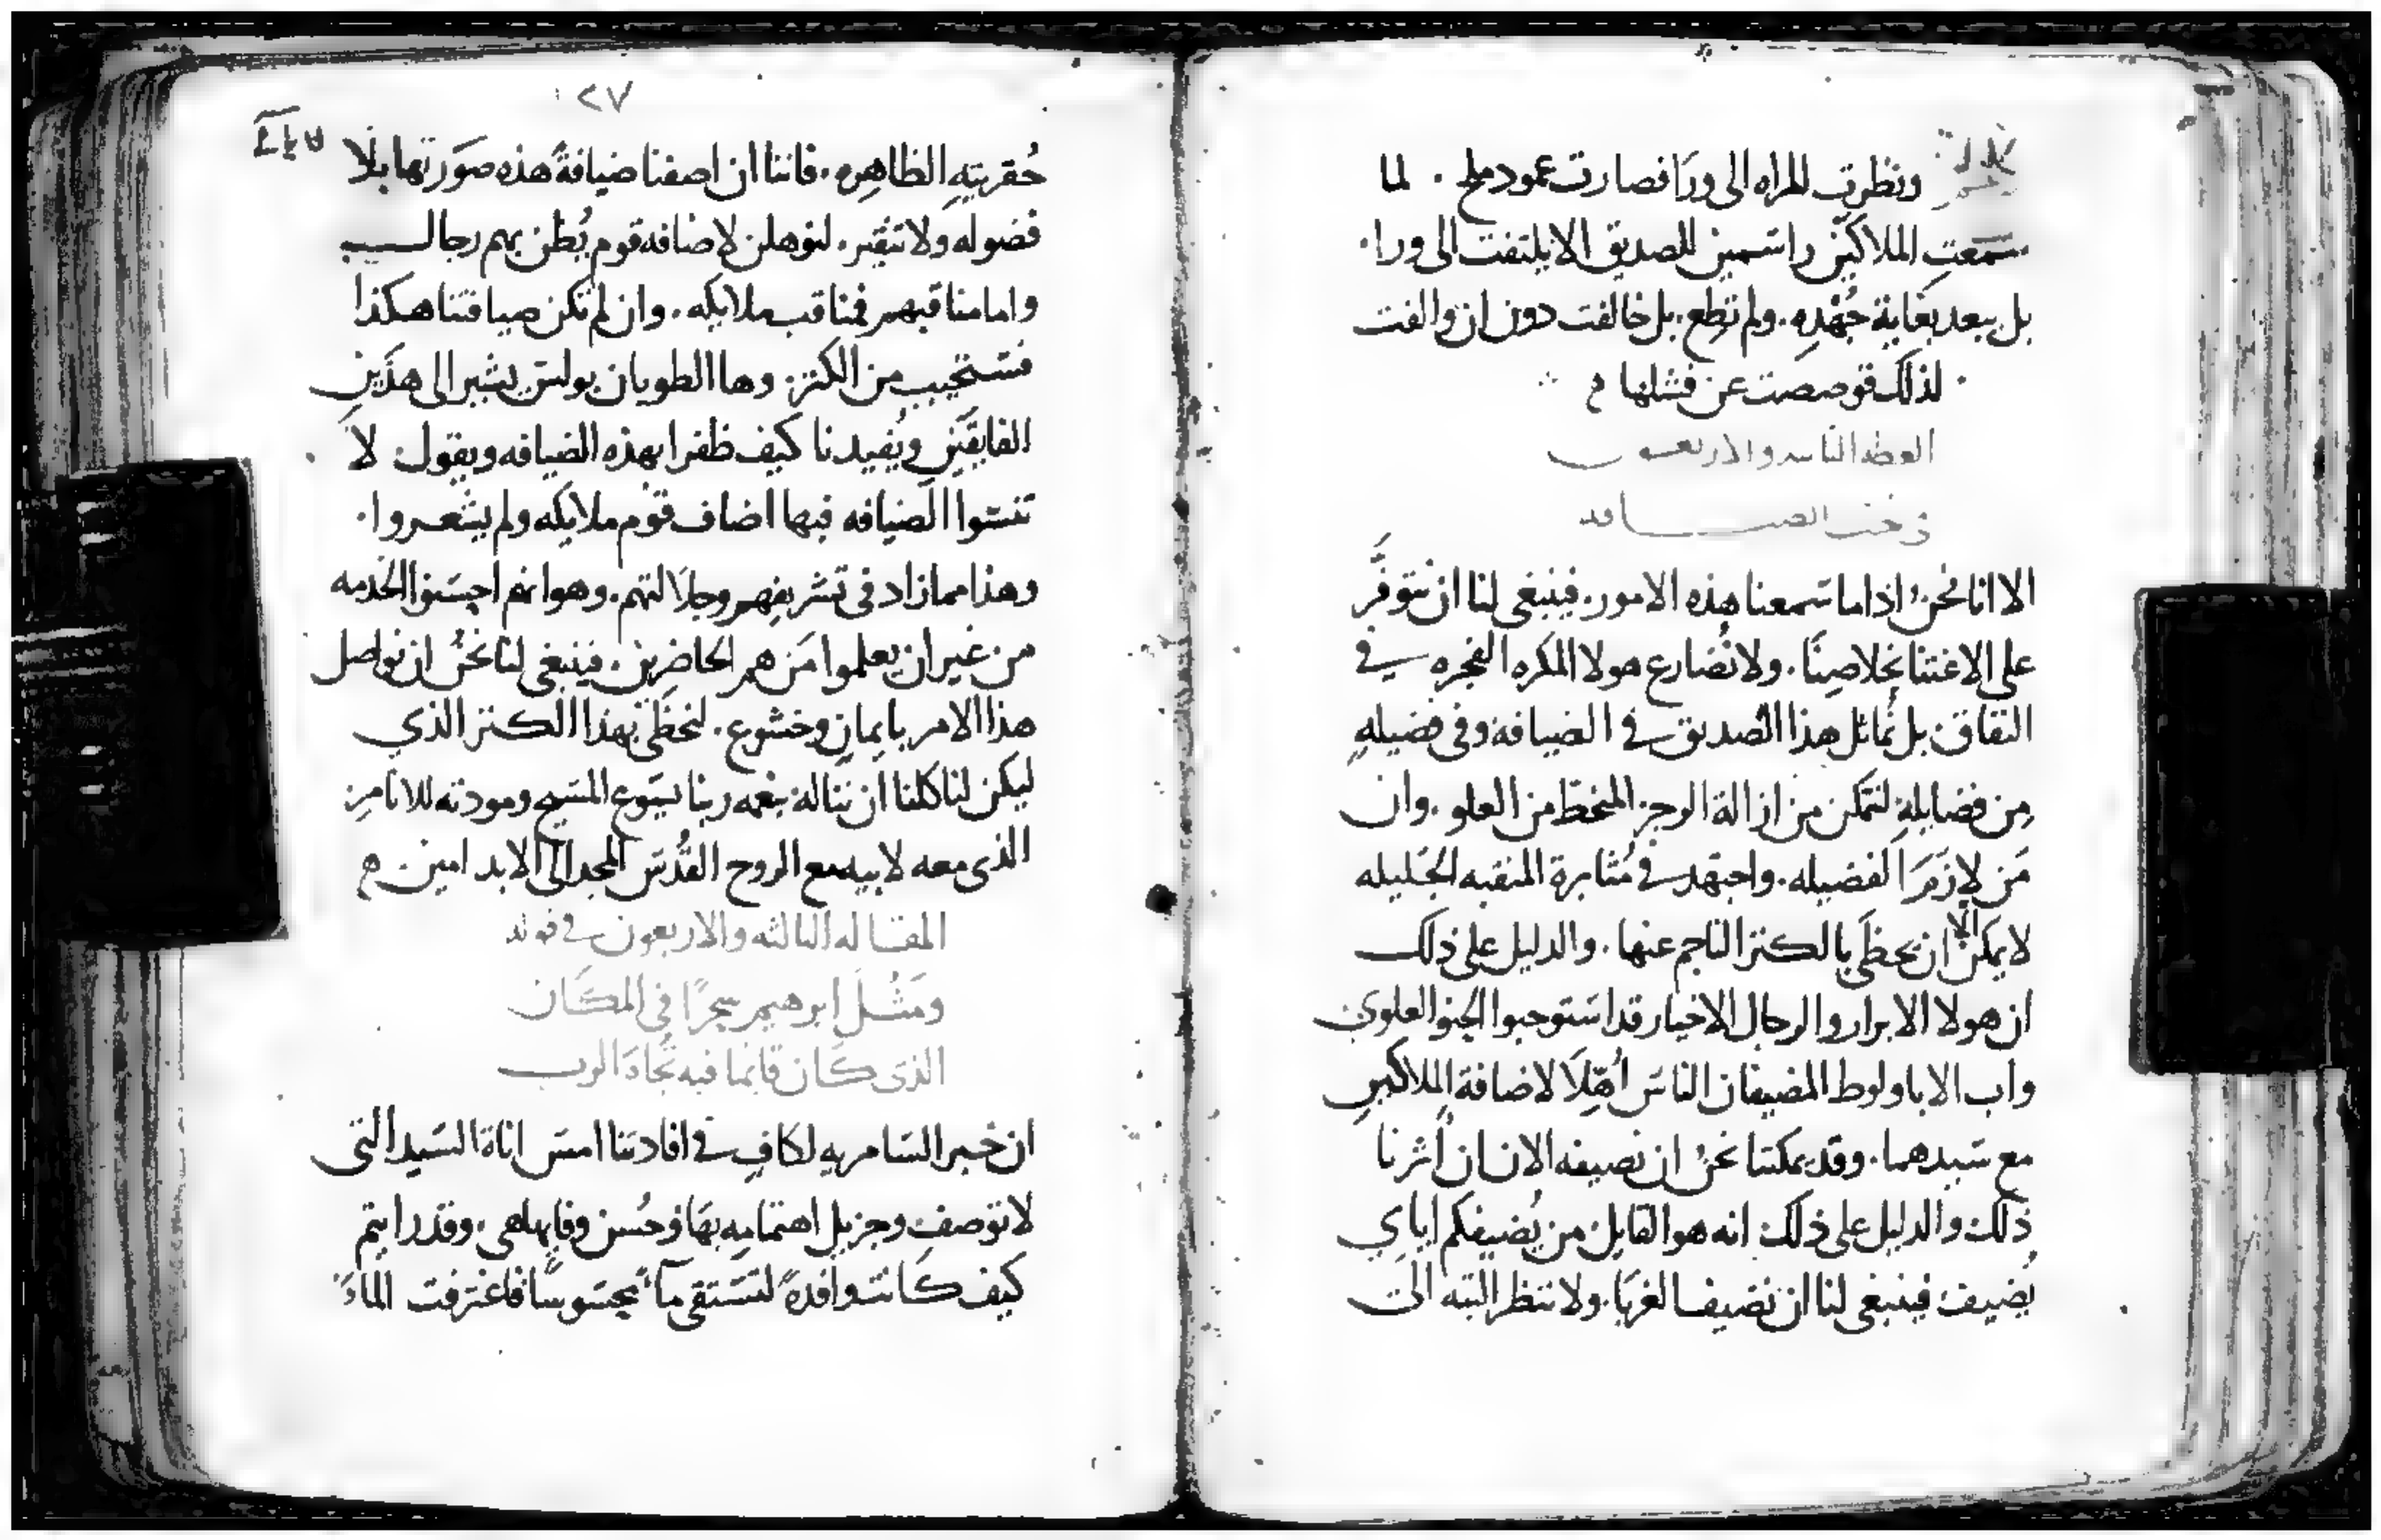 ونظرت المراه الى ورا فصارت عمود ملح . لما
سمعت الملاكين راسمين للصديق الا يلتفت الى ورا .
بل يبعد بغاية جُهْدِهِ . ولم تطع . بل خالفت دون ان والفت
لذلك قوصصت عن فشلها
العظه الثامنه والاربعون
في حب الضيافه
الا انا نحن اذا ما سمعنا هذه الامور . فينبغي لنا ان نتوفَّر
على الاعتنا بخلاصنَا . ولا نُضارع هولا المكره الفجره في
النفاق . بل نُماثل هذا الصديق في الضيافه وفي فضيلهٍ
مِن فضايلهِ لنتمكن من ازالة الوجز المنحطّ من العلو . وان
مَن لازَمَ الفضيله . واجتهد في مُثابرة المنقبه الجَليله
لا يمكن الا ان يحظَى بالكنز الناجم عنها . والدليل على ذلك
ان هولا الابرار والرجال الاخيار قد استوجبوا الحِنو العلوي
واب الابا ولوط المضيفان الناس أُهِّلَا لاضافة الملاكين
مع سيدهما . وقد يمكننا نحن ان نضيفه الان ان أثرنا
ذلك والدليل على ذلك انه هو القايل من يُضيفكم اياي
يُضيف فينبغي لنا ان نضيف الغربَا . ولا ننظر البته الى
١٢٧
حُقريتهِ الظاهره . فاننا ان اضفنا ضيافةً هذه صَورتها بلا
فضوله ولا تنقير . لنوهلن لاضافه قوم يُظن بهم رجال
واما مناقبهم فمناقب ملايكه . وان لم تكن ضيافتنا هكذا
فسنخيب من الكنز . وها الطوبان بولس يشير الى هذَين
الفايقَين ويُفيدنا كيف ظفرا بهذه الضيافه ويقول لا
تنسوا الضيافه فبها اضاف قوم ملايكه ولم يشعروا .
وهذا مما زاد في تشريفهم وجلالتهم . وهو انهم احسنوا الخدمه
من غير ان يعلموا مَن هم الحاضرين . فينبغي لنا نحن ان نواصل
هذا الامر بايمانٍ وخشوع . لنحظَى بهذا الكنز الذي
ليكن لنا كلنا ان نناله بنعمه ربنا يسوع المسيح ومودته للانام
الذي معه لابيه مع الروح القُدس المجد الى الابد امين
المقاله الثالثه والاربعون في قوله
ومَثُلَ ابرهيم سَحرًا في المكَان
الذي كَان قايما فيه تُجاه الرب
ان خبر السامريه لكافٍ في افادتنا امس اناة السيد التي
لا توصف وجزيل اهتمامِه بهَا وحُسن وفايها هي . وقد رايتم
كيف كانت وافدةً لتستقي مآءً محسوسًا فاغترفت الماءَ